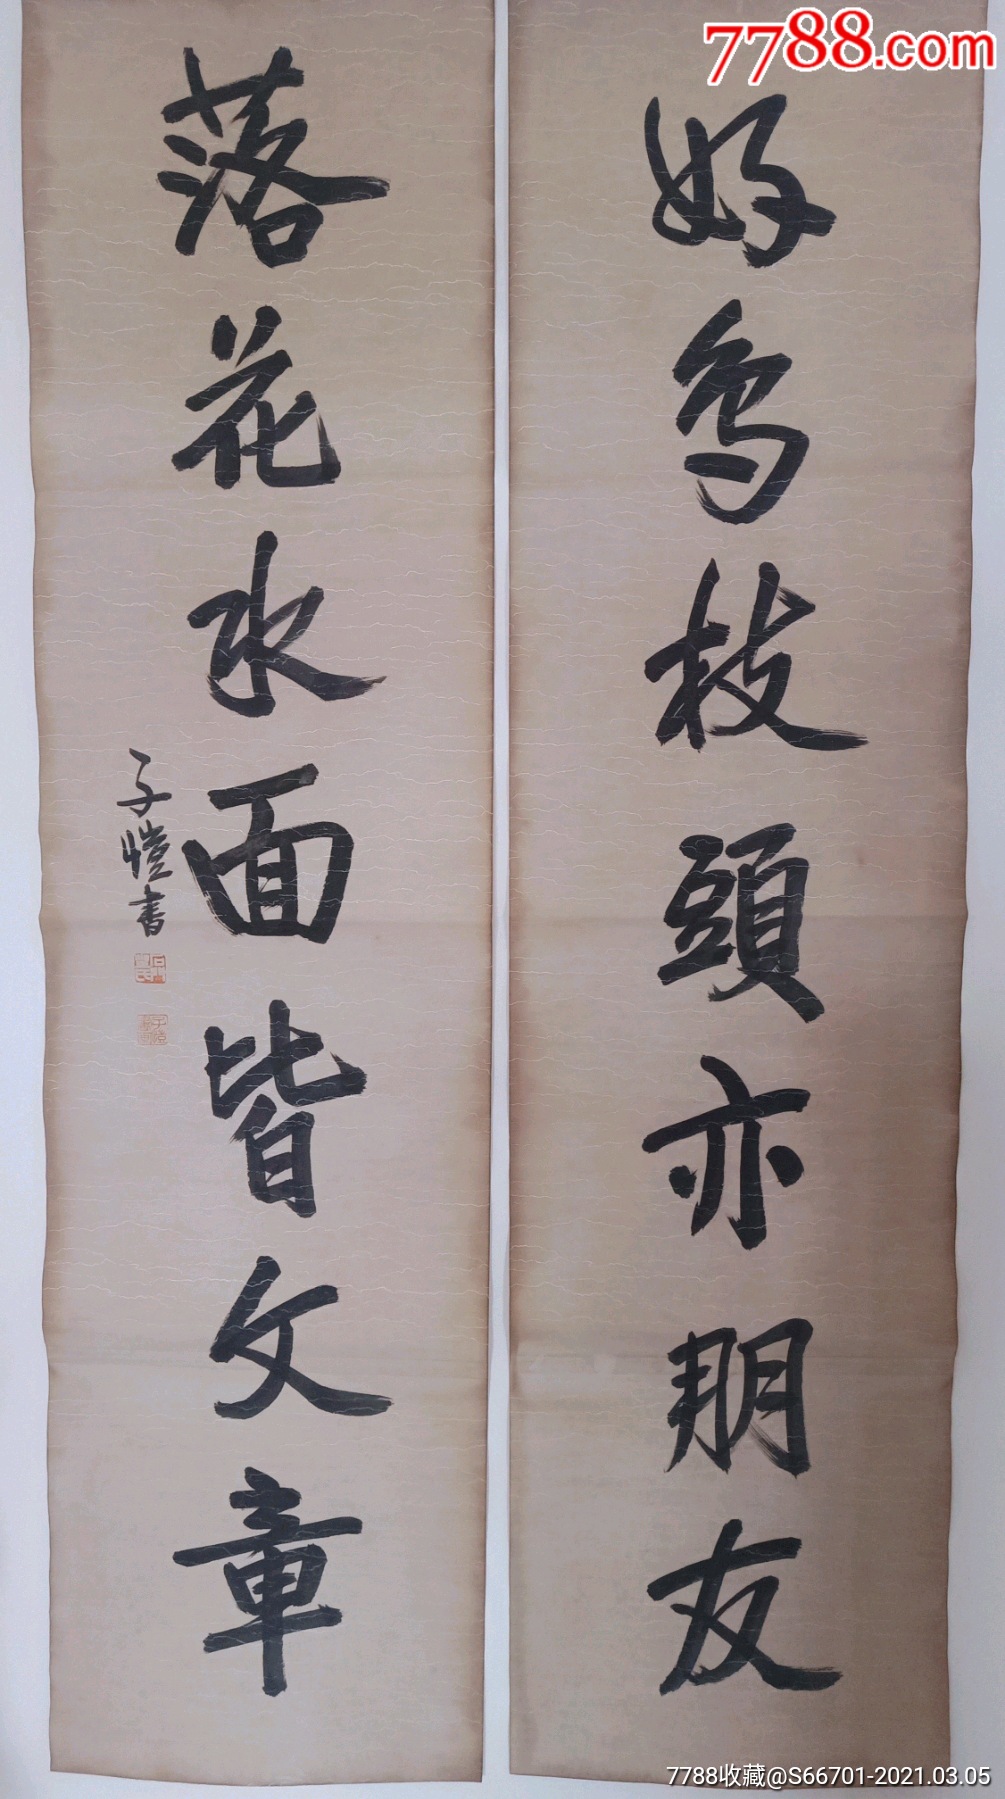 7788.com
好鸟枝頭亦朋友
落花水面皆文章
子愷书
7788收藏@S66701-2021.03.05